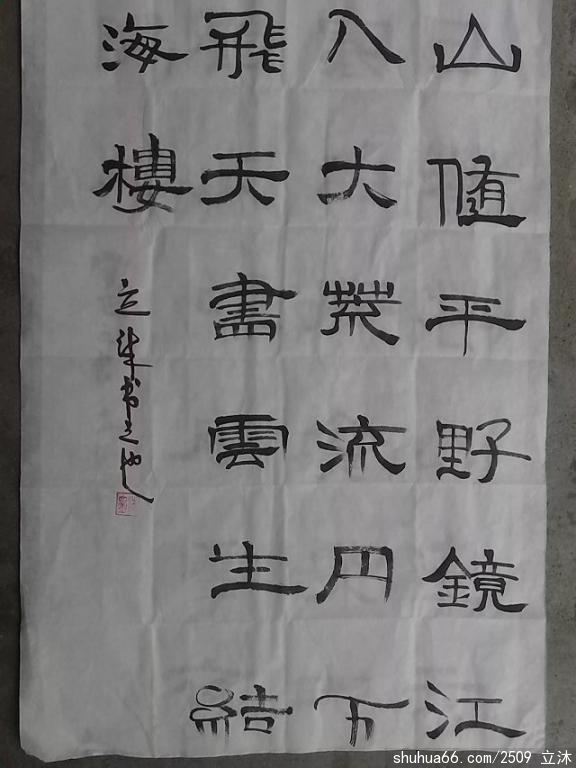 山随平野鏡江
入大荒流月下
飛天盡雲生結
海樓
shuhua66.com/2509 立沐